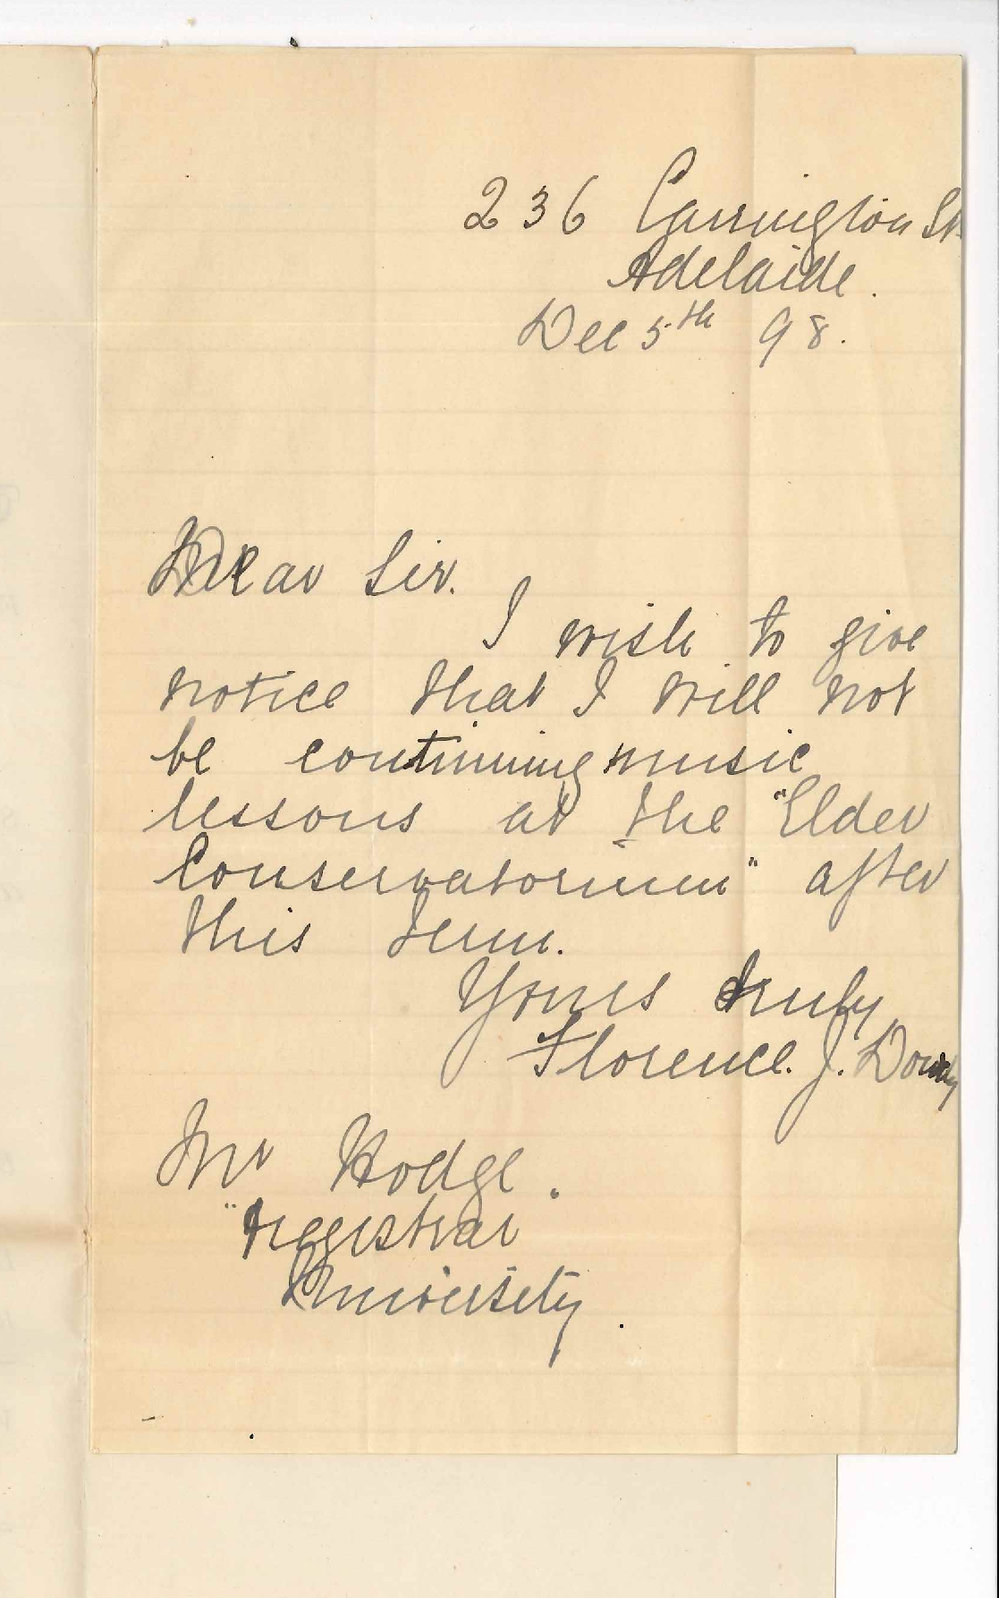 236 Carrington St.
Adelaide.
Dec 5th 98.
Dear Sir.
I wish to give
notice that I will not
be continuing music
lessons at the "Elder
Conservatorium" after
this term.
Yours truly
Florence. J.
Mr Hodge.
"Registrar"
University.